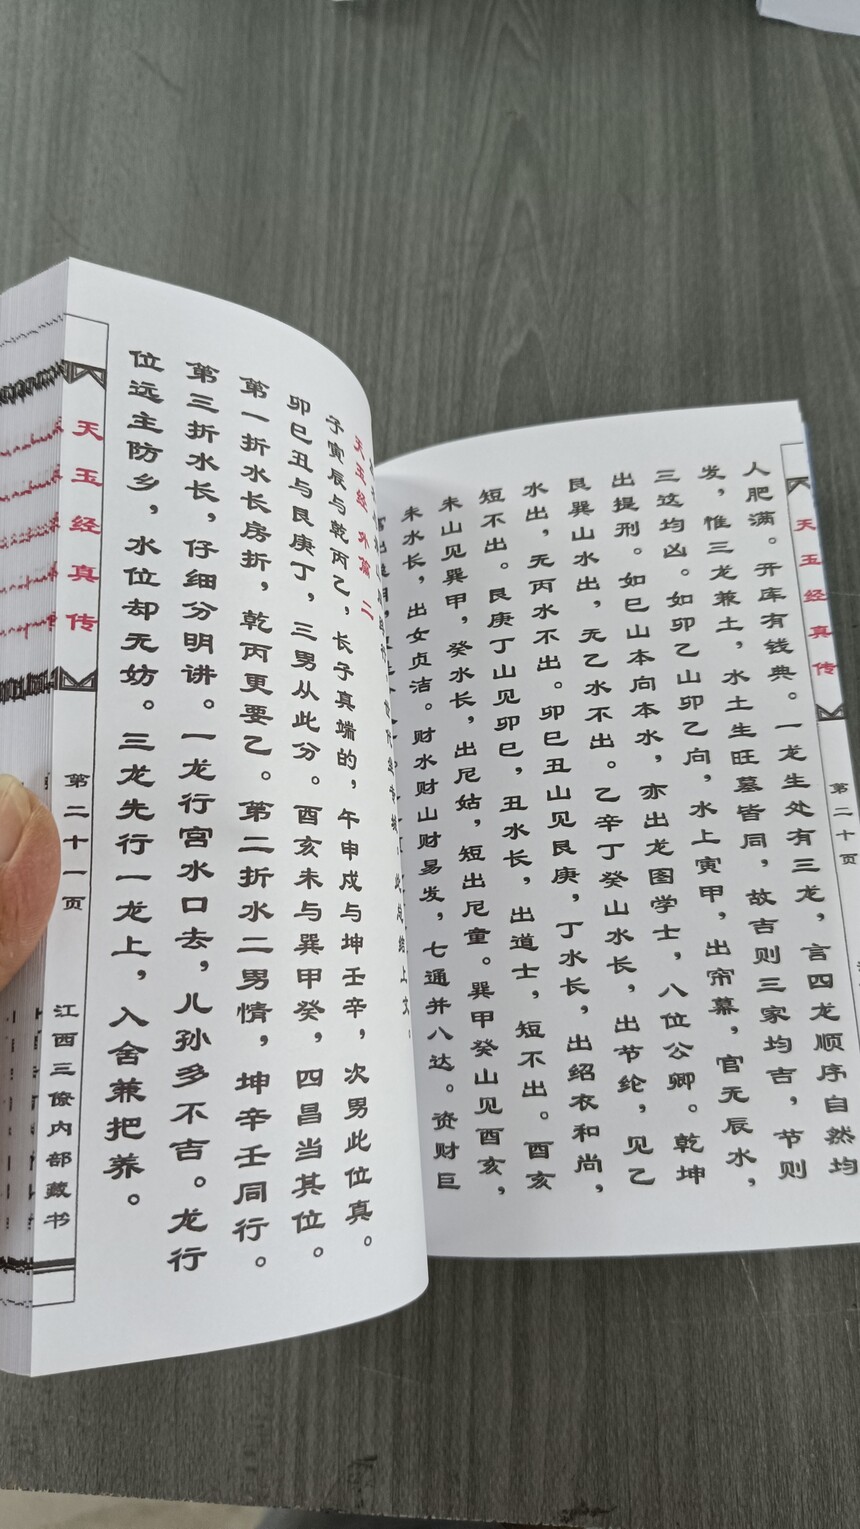 天玉经真传
第二十页
人肥满。开库有钱典。一龙生处有三龙，言四龙顺序自然均
发，惟三龙兼土，水土生旺墓皆同，故吉则三家均吉，节则
三这均凶。如卯乙山卯乙向，水上寅甲，出帘幕，官无辰水，
出提刑。如巳山本向本水，亦出龙图学士，八位公卿。乾坤
艮巽山水出，无乙水不出。乙辛丁癸山水长，出节纶，见乙
水出，无丙水不出。卯巳丑山见艮庚，丁水长，出绍衣和尚，
短不出。艮庚丁山见卯巳，丑水长，出道士，短不出。酉亥
未山见巽甲，癸水长，出尼姑，短出尼童。巽甲癸山见酉亥，
未水长，出女贞洁。财水财山财易发，七通并八达。资财巨
天玉经外篇 二
子寅辰与乾丙乙，长子真端的，午申戌与坤壬辛，次男此位真。
卯巳丑与艮庚丁，三男从此分。酉亥未与巽甲癸，四昌当其位。
第一折水长房折，乾丙更要乙。第二折水二男情，坤辛壬同行。
第三折水长，仔细分明讲。一龙行宫水口去，儿孙多不吉。龙行
位远主防乡，水位却无妨。三龙先行一龙上，入舍兼把养。
天玉经真传
第二十一页
江西三僚内部藏书